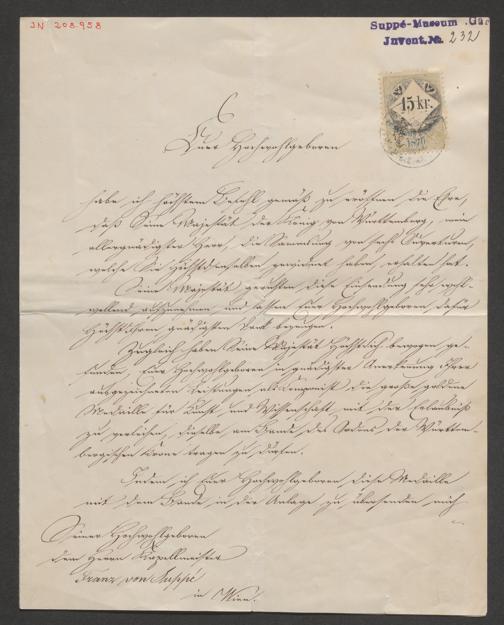 JN 208.958
Suppé-Museum Gar
Jnvent.№ 232
15 kr.
1870
Euer Hochwohlgeboren
habe ich höchstem Befehl gemäß zu eröffnen die Ehre,
daß Seine Majestät der König von Württemberg, mein
allergnädigster Herr, die Sammlung von sechs Ouverturen,
welche Sie Höchstdemselben gewidmet haben, erhalten hat.
Seine Majestät geruhten diese Zusendung sehr wohl-
wollend aufzunehmen und lassen Euer Hochwohlgeboren dafür
Höchst Ihren gnädigsten Dank bezeugen.
Zugleich haben Seine Majestät Höchstsich bewogen ge-
funden, Euer Hochwohlgeboren in gnädigster Anerkennung Ihrer
ausgezeichneten Leistungen als Componist die große goldene
Medaille für Kunst und Wissenschaft mit der Erlaubniß
zu verleihen, dieselbe am Bande des Ordens der Württem-
bergischen Krone tragen zu dürfen.
Indem ich Euer Hochwohlgeboren diese Medaille
mit dem Bande in der Anlage zu übersenden mich
Seiner Hochwohlgeboren
dem Herrn Kapellmeister
Franz von Suppé
in Wien.